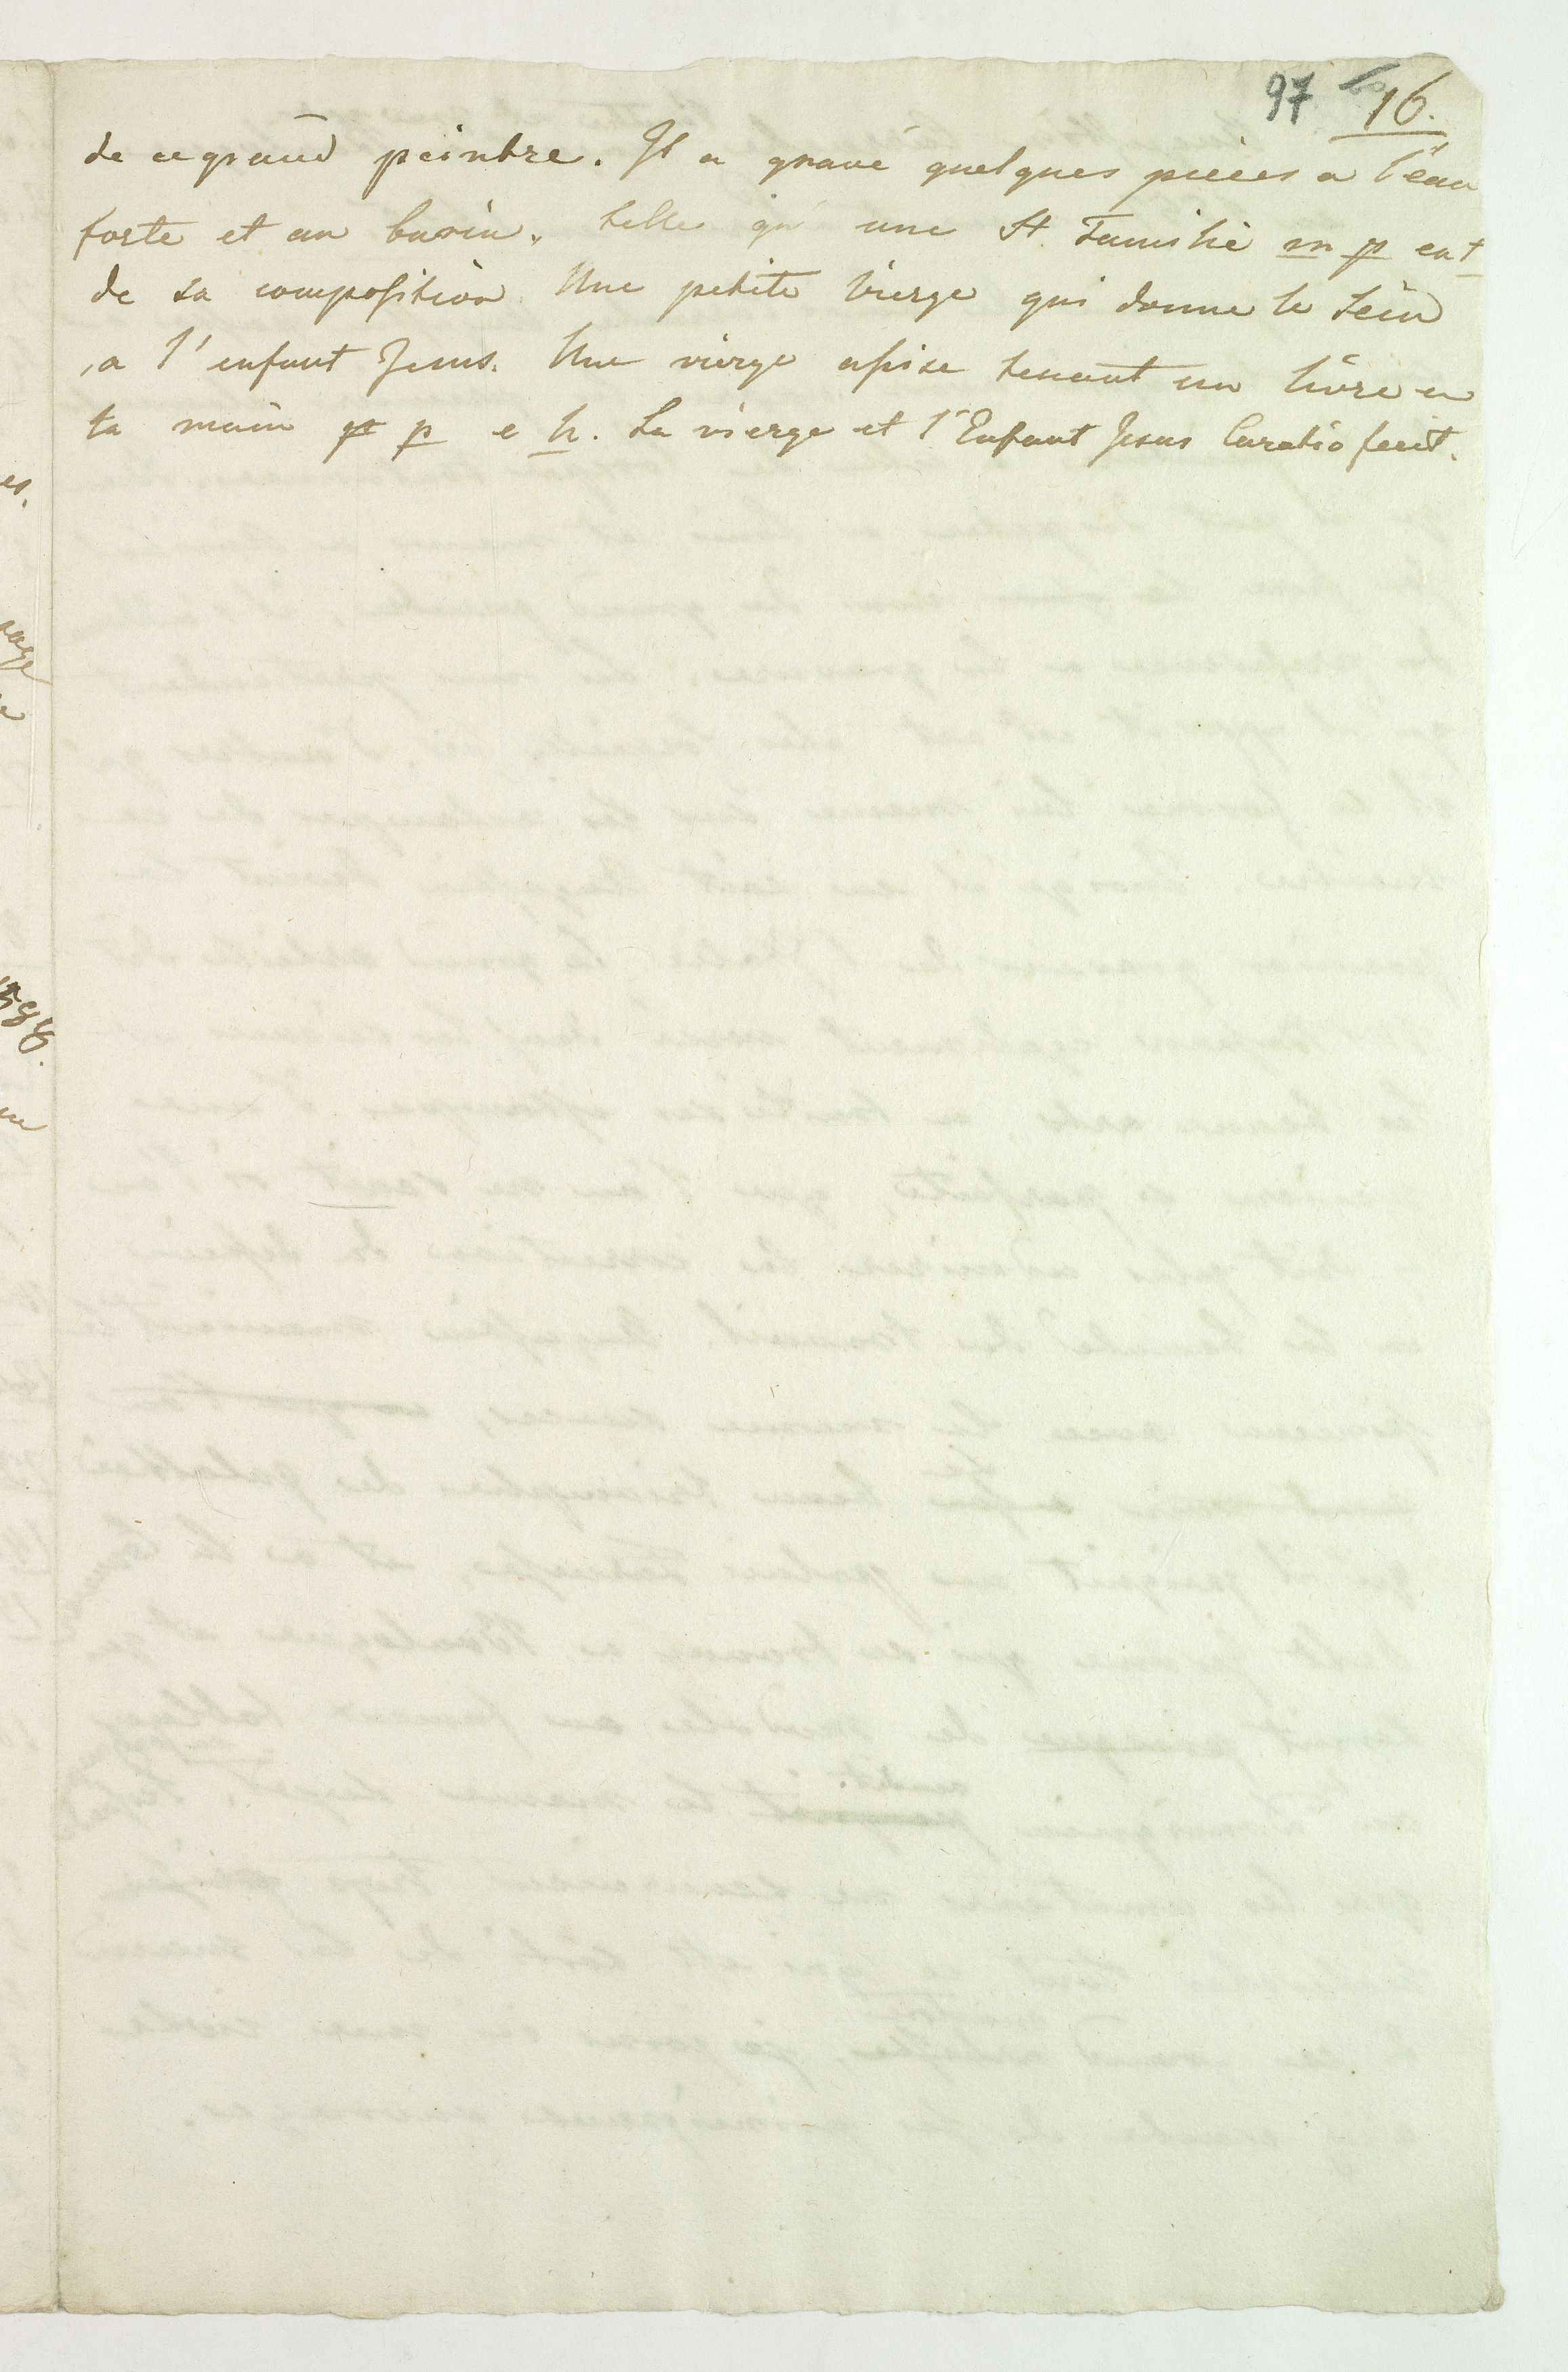 97 16.
de ce grand peintre. Il a gravé quelques pieces a l'eau
forte et au burin, telles qu'une St. Famille m p en t
de sa composition. Une petite Vierge qui donne le sein
a l'enfant Jesus. Une vierge assise tenant un livre a
la main p e h. La vierge et l'Enfant Jesus Caratio fecit.